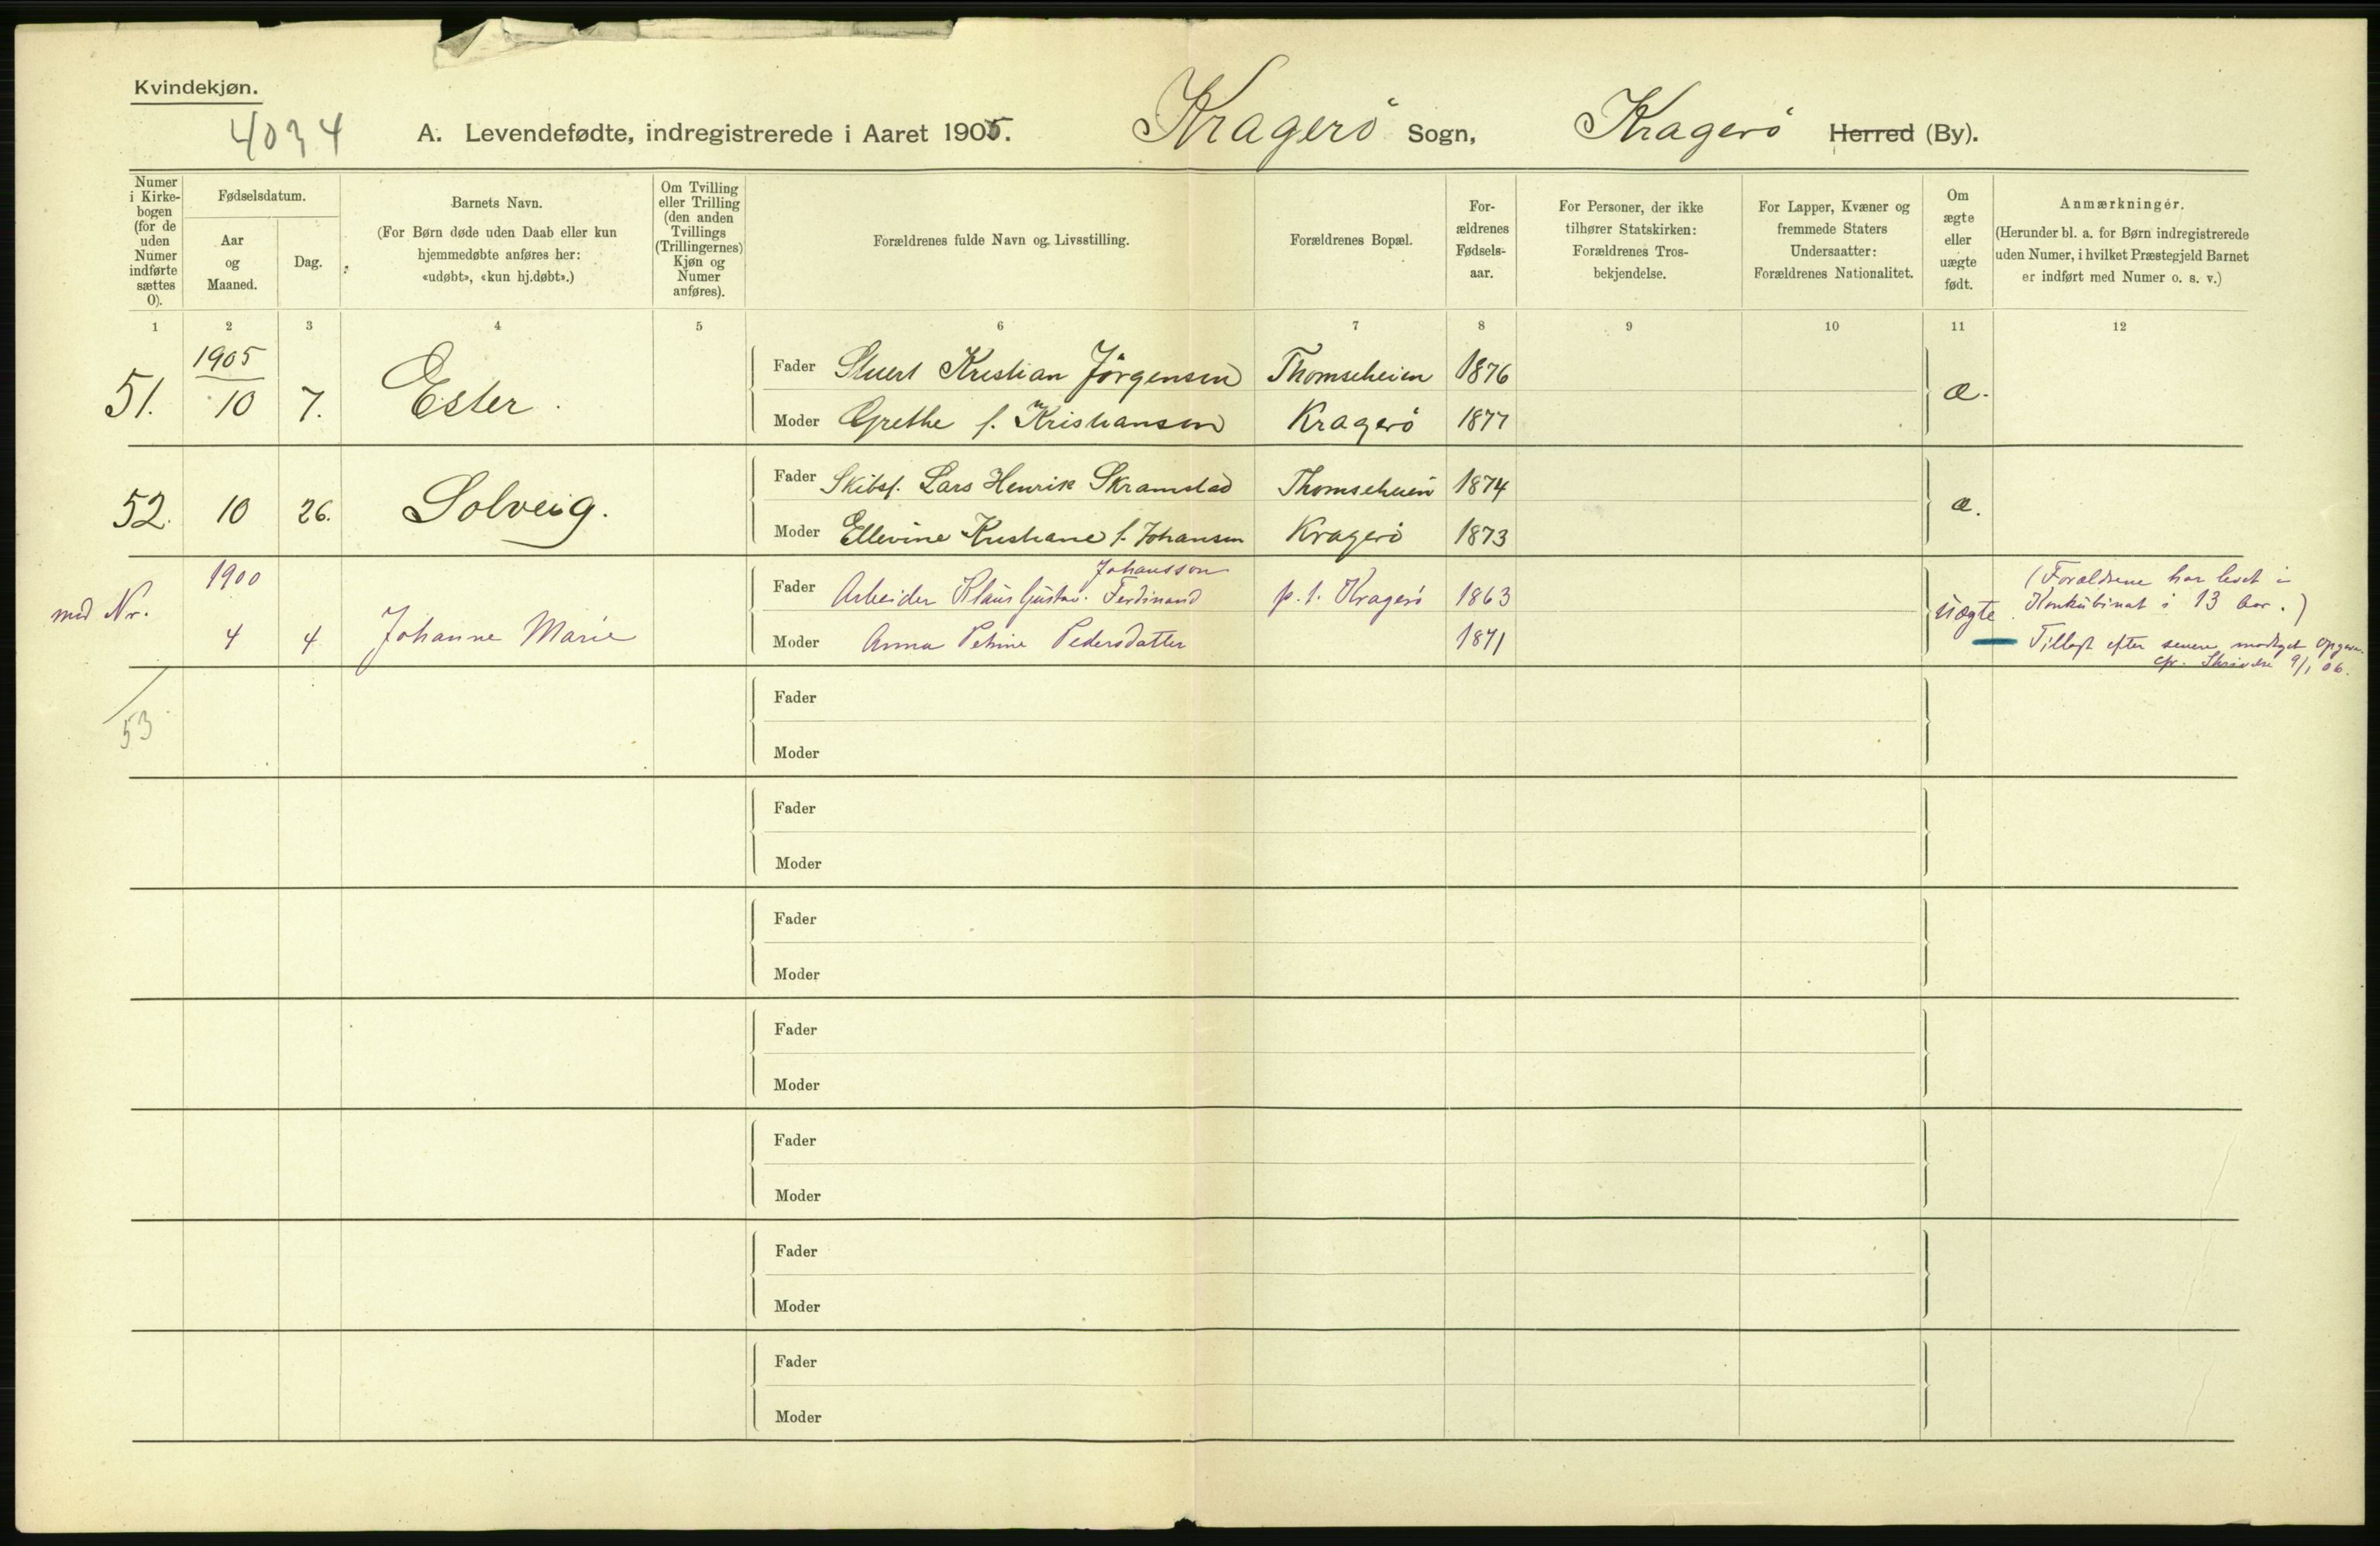 Kvindekjøn.
4034
A. Levendefødte, indregistrerede i Aaret 1905. Kragerö Sogn, Kragerö Herred (By).
Numer i Kirkebogen (for de uden Numer indførte sættes 0).
Fødselsdatum.
Aar og Maaned.
Dag.
Barnets Navn.
(For Børn døde uden Daab eller kun
hjemmedøbte anføres her:
«udøbt», «kun hj.døbt».)
Om Tvilling
eller Trilling
(den anden
Tvillings
(Trillingernes)
Kjøn og
Numer
anføres).
Forældrenes fulde Navn og Livsstilling.
Forældrenes Bopæl.
For-
ældrenes
Fødsels-
aar.
For Personer, der ikke
tilhører Statskirken:
Forældrenes Tros-
bekjendelse.
For Lapper, Kvæner og
fremmede Staters
Undersaatter:
Forældrenes Nationalitet.
Om
ægte
eller
uægte
født.
Anmærkninger.
(Herunder bl. a. for Børn indregistrerede
uden Numer, i hvilket Præstegjeld Barnet
er indført med Numer o. s. v.)
1 2 3 4 5 6 7 8 9 10 11 12
1905
51. 10 7. Ester.
Fader Kristian Jörgensen Thomseheien 1876
æ.
Moder Grethe f. Kristiansen Kragerö 1877
52. 10 26. Solveig.
Fader Skibsf. Lars Henrik Skramstad Thomseheien 1874
æ.
Moder Ellevine Kristiane f. Johansen Kragerö 1873
1900
Johansson
Fader Arbeider Klaus Gustav Ferdinand p. t. Kragerö 1863
Nr.
4 4 Johanne Marie
Moder Anna Petrine Pedersdatter 1871
uægte
(Forældrene har levet i
Konkubinat i 13 Aar.)
Tillagt efter senere modtaget Opgave
cfr. Skrivelse 9/1 06.
53
Fader
Moder
Fader
Moder
Fader
Moder
Fader
Moder
Fader
Moder
Fader
Moder
Fader
Moder